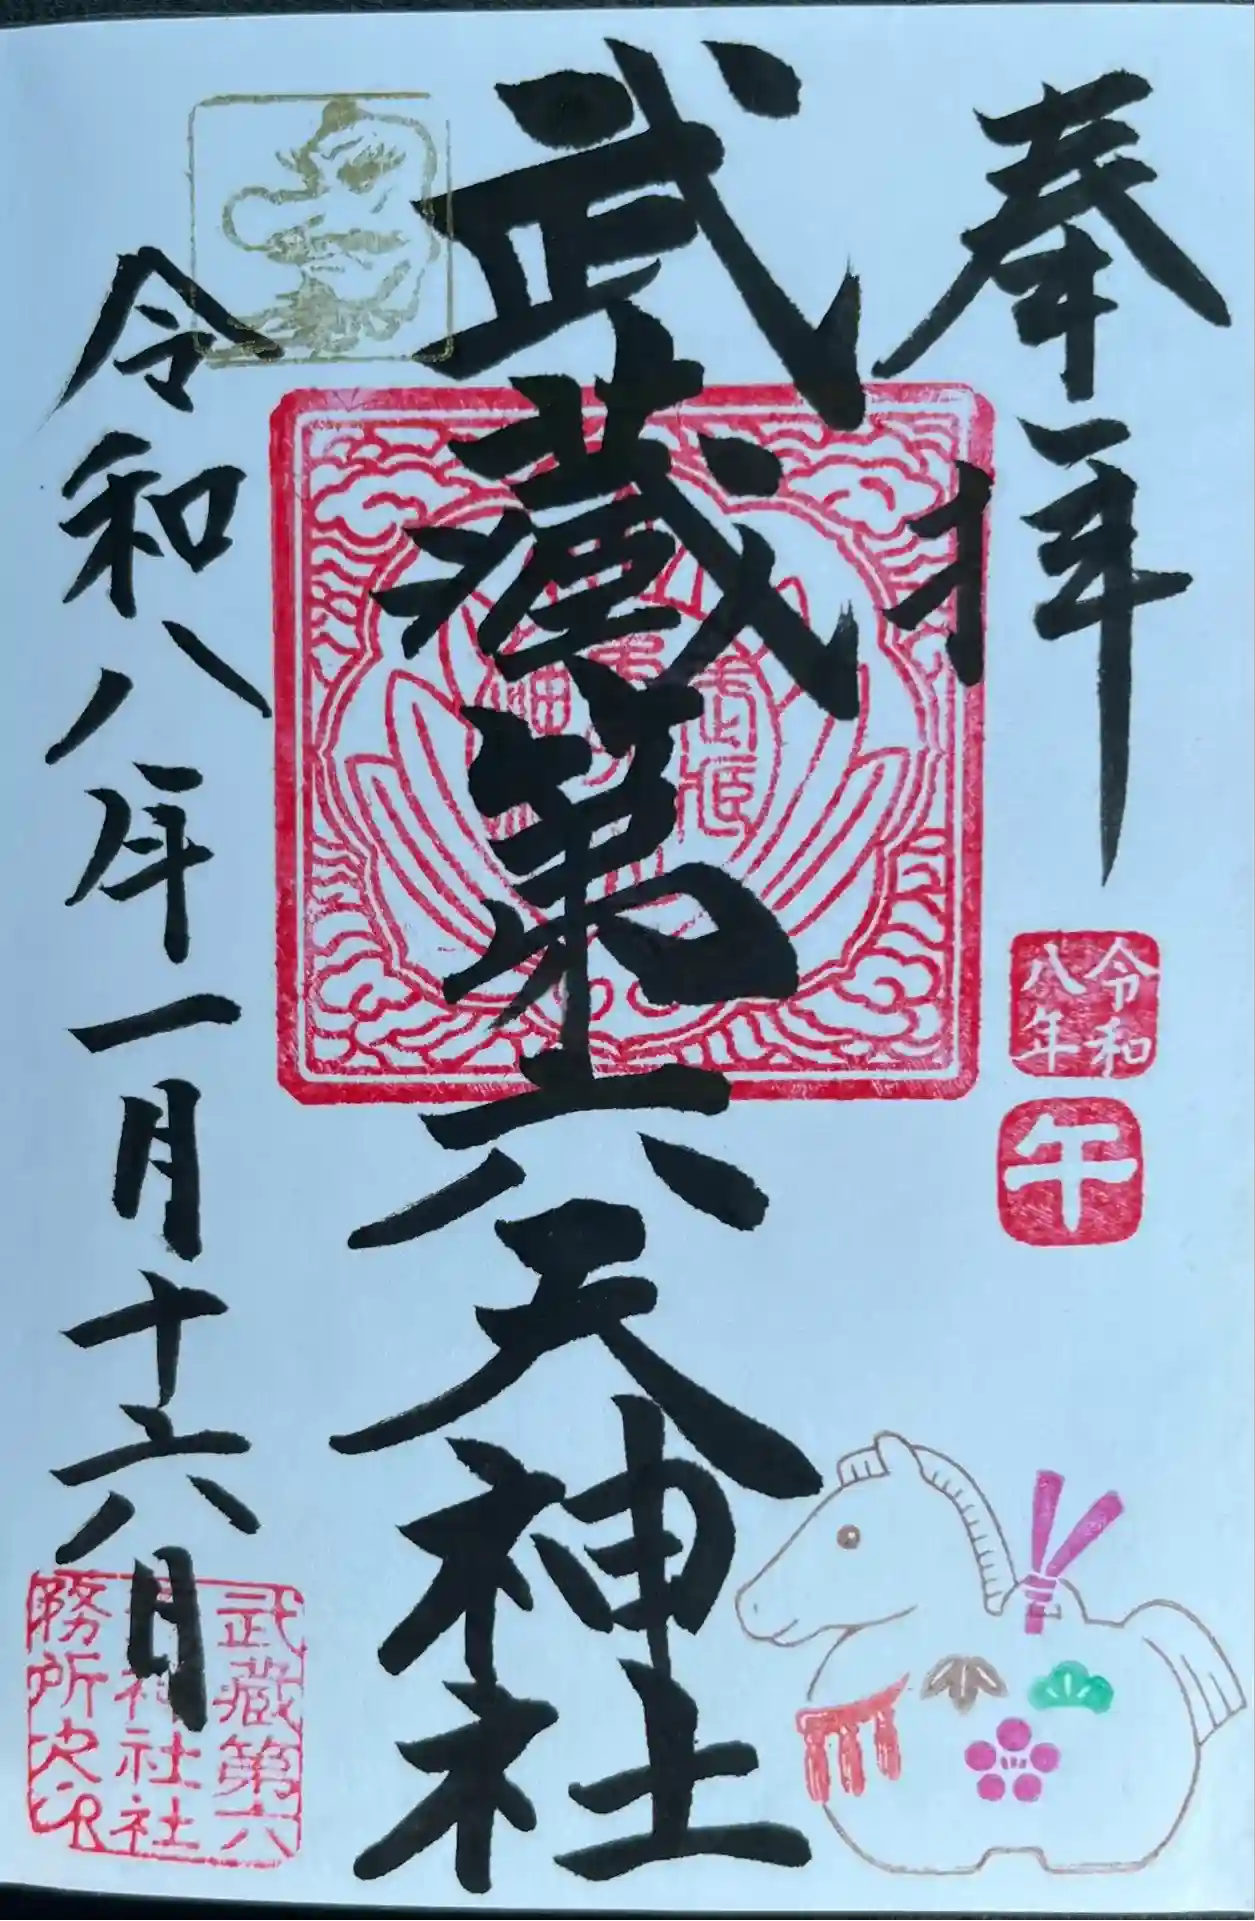 奉拝
令和
八年
午
武蔵第六天神社
令和八年一月十六日
武蔵第六
神社社
務所之印